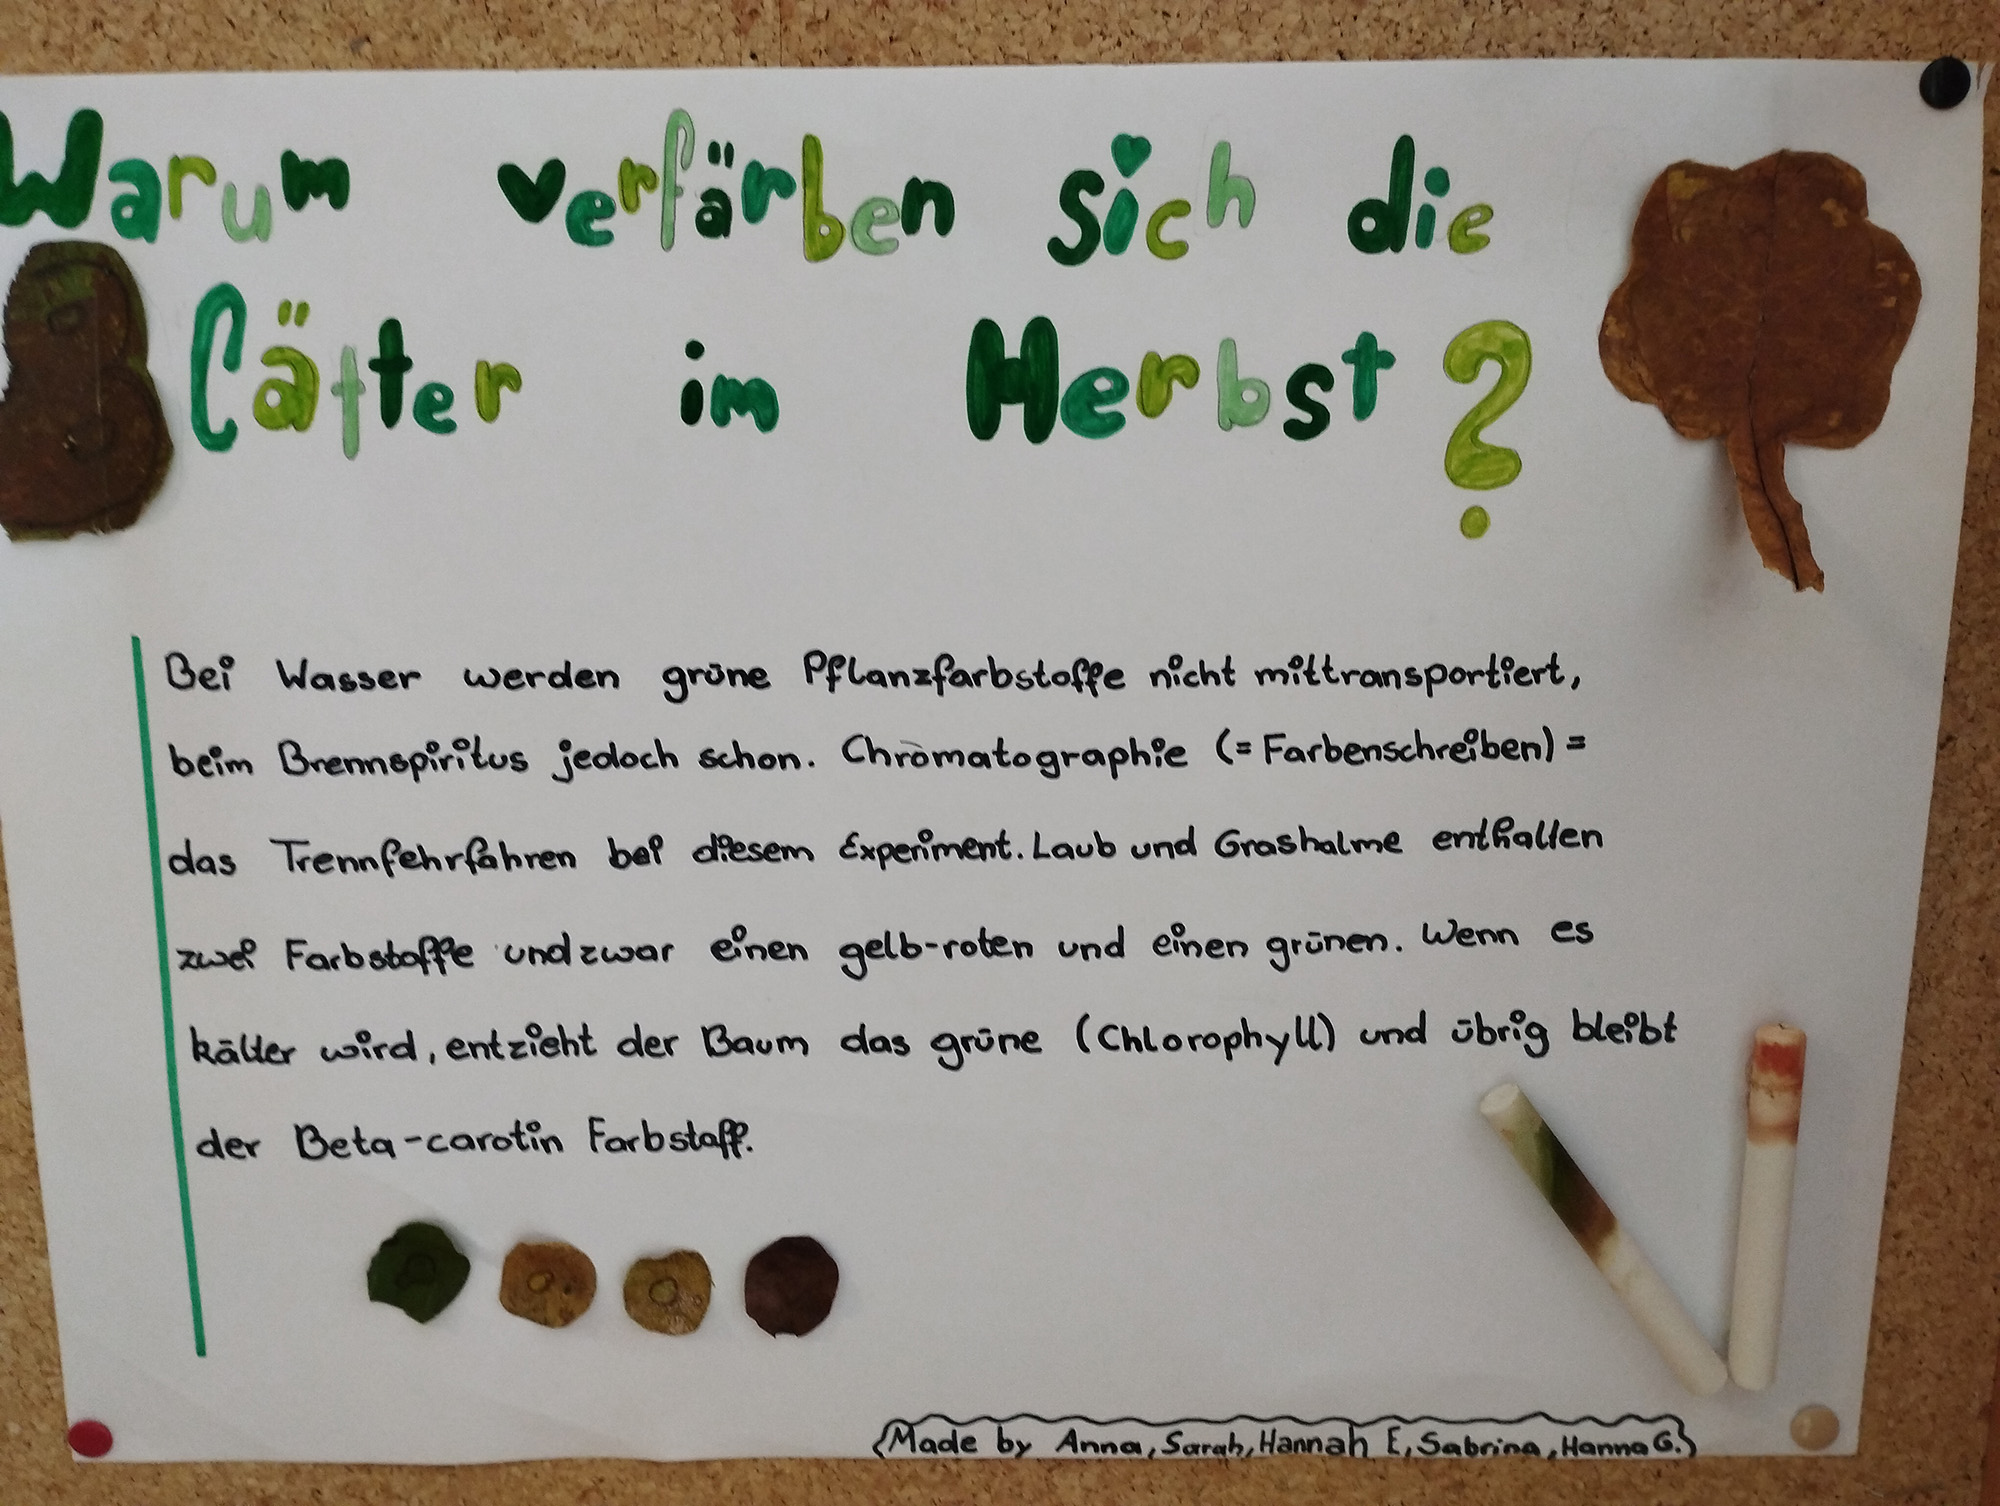 Warum verfärben sich die
Blätter im Herbst?
Bei Wasser werden grüne Pflanzfarbstoffe nicht mittransportiert,
beim Brennspiritus jedoch schon. Chromatographie (= Farbenschreiben) =
das Trennfehrfahren bei diesem Experiment. Laub und Grashalme enthalten
zwei Farbstoffe undzwar einen gelb-roten und einen grünen. Wenn es
kälter wird, entzieht der Baum das grüne (Chlorophyll) und übrig bleibt
der Beta-carotin Farbstoff.
Made by Anna, Sarah, Hannah E, Sabrina, Hanna G.